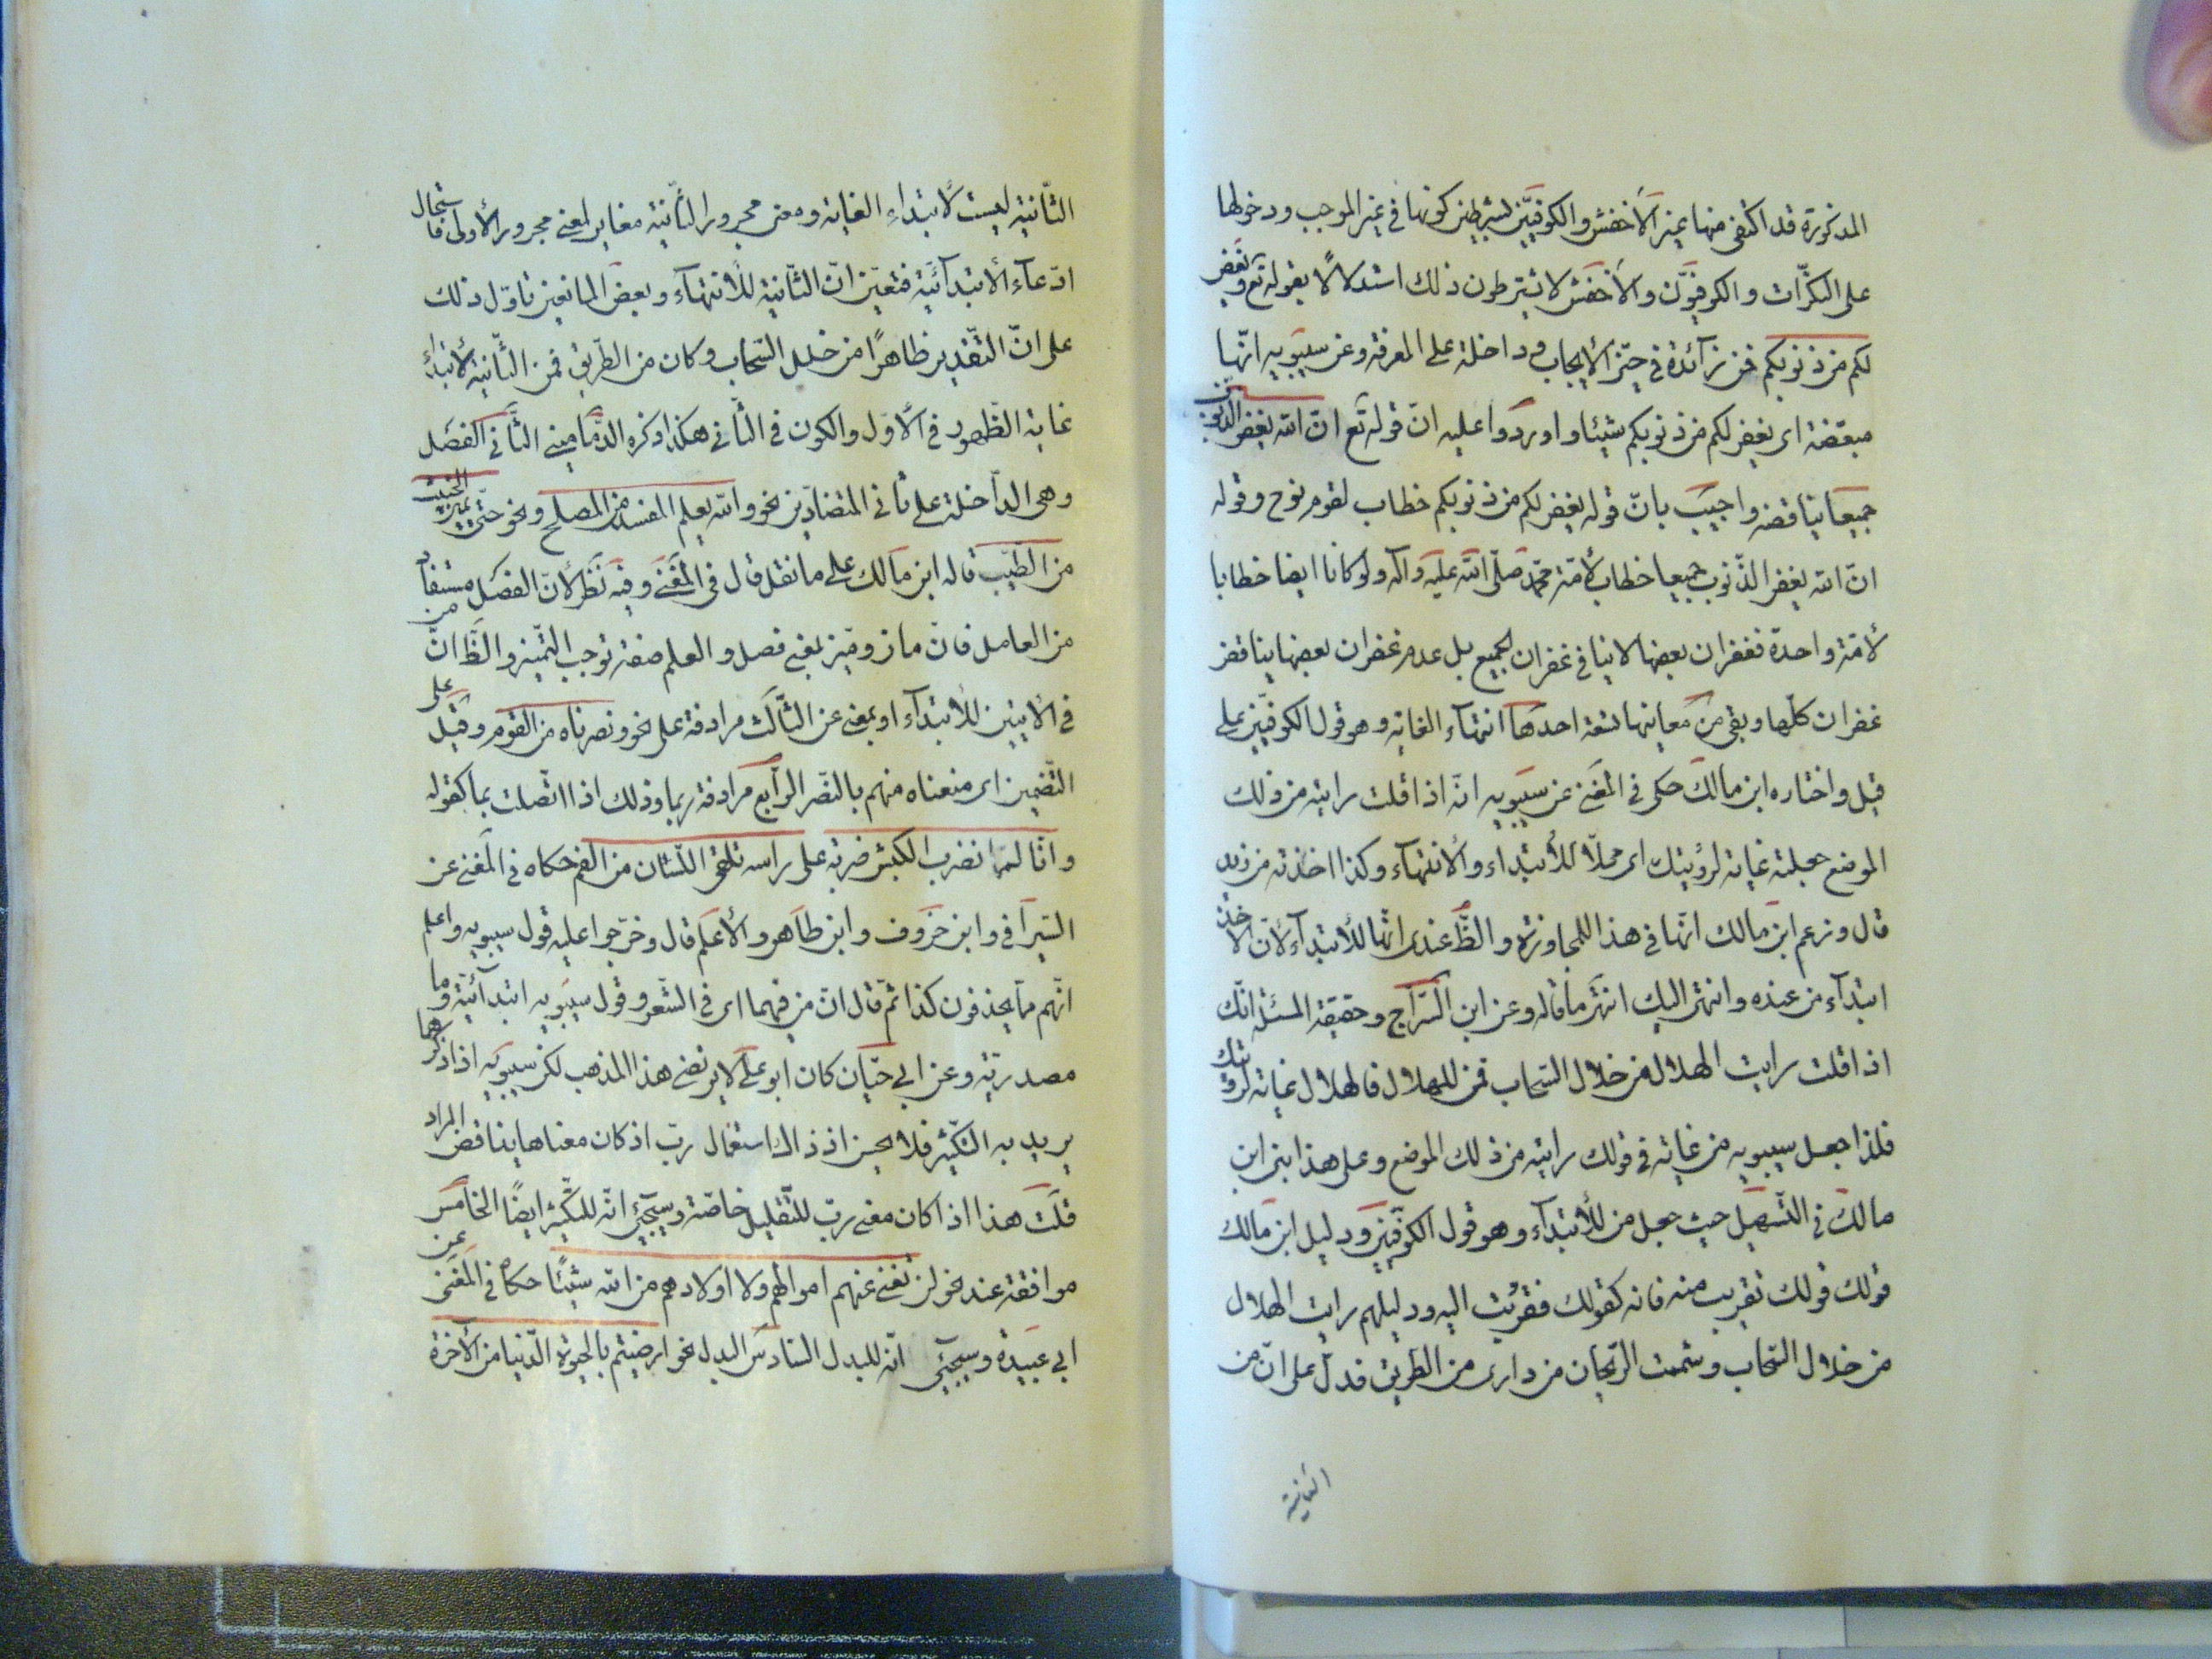 المذكورة قد اكتفى منها غير الأخفش والكوفيّين بشرطين كونها فى غير الموجب ودخولها
على النكرات والكوفيّون والأخفش لا يشترطون ذلك استدلالًا بقوله تع ويغفر
لكم من ذنوبكم فمن زآئدة فى حيّز الأيجاب وداخلة على المعرفة وعن سيبويه انّها
مبعّضة اى يغفر لكم من ذنوبكم شيئا واوردوا عليه انّ قوله تع انّ الله يغفر الذنوب
جميعا يناقضه واجيب بانّ قوله يغفر لكم من ذنوبكم خطاب لقوم نوح وقوله
انّ الله يغفر الذّنوب جميعا خطاب لأمّة محمّد صلّى الله عليه وآله ولو كانا ايضا خطابا
لأمّة واحدة فغفران بعضها لا ينافى غفران الجميع بل عدم غفران بعضها يناقض
غفران كلّها وبقى من معانيها تسعة احدها انتهآء الغاية وهو قول الكوفيّين على
قيل واختاره ابن مالك حكى فى المغنى عن سيبويه انّه اذا قلت رايته من ذلك
الموضع جعلته غاية لرؤيتك اى محلّا للأبتداء والأنتهآء وكذا اخذته من زيد
قال وزعم ابن مالك انّها فى هذا للمجاوزة والظّ عندى انّها للأبتدآء لأنّ الاخذ
ابتدآء من عنده وانتهى اليك انتهى ما قاله وعن ابن السّراج وحقيقة المسئلة انّك
اذا قلت رايت الهلال من خلال السّحاب فمن للهلال فالهلال غاية لرؤيتك
فلذا جعل سيبويه من غاية فى قولك رايته من ذلك الموضع وعلى هذا بنى ابن
مالك فى التّسهيل حيث جعل من للأبتدآء وهو قول الكوفيّين ودليل ابن مالك
قولك قولك تقربت منه فانه كقولك فقربت اليه ودليلهم رايت الهلال
من خلال السّحاب وشممت الرّيحان من دارى من الطريق فدلّ على انّ من
الثانية
الثّانية ليست لأبتداء الغاية ومعنى مجرور الثّانية مغاير لمعنى مجرور الأولى فاستحال
ادّعآء الأبتدآئيّة فتعيّن انّ الثّانية للأنتهآء وبعض المانعين تاوّل ذلك
على انّ التّقدير ظاهرًا من خلل السّحاب وكان من الطّريق فمن الثّانية لأبتداء
غاية الظّهور فى الأوّل والكون فى الثّانى هكذا ذكره الدّمامينى الثّانى الفصل
وهى الدّاخلة على ثانى المتضادّين نحو والله يعلم المفسد من المصلح ونحو حتّى يميز الخبيث
من الطّيّب قاله ابن مالك على ما نقل قال فى المغنى وفيه نظر لأنّ الفصل مستفاد
من العامل فانّ ماز وميّز بمعنى فصل والعلم صفة توجب التّميز والظّ انّ من
فى الايتين للأبتدآء او بمعنى عن الثّالث مرادفة على نحو ونصرناه من القوم وقيل على
التّضمين اى منعناه منهم بالنّصر الرّابع مرادفة ربما وذلك اذا اتّصلت بما كقوله
وانّا لممّا نضرب الكبش ضربة على راسه تلقى اللّسان من الفم حكاه فى المغنى عن
السّيرآفى وابن خروف وابن طاهر والأعلم قال وخرّجوا عليه قول سيبويه واعلم
انّهم مما يحذفون كذا ثمّ قال انّ من فيهما اى فى الشّعر وقول سيبويه ابتدآئيّة وما
مصدريّة وعن ابى حيّان كان ابو على لا يرتضى هذا المذهب لكن سيبويه اذا ذكرها
يريد به التّكثير فلا يحسن اذ ذاك استعمال ربّ اذ كان معناها يناقض المراد
قلت هذا اذا كان معنى ربّ للتّقليل خاصّة وسيجيئ انّه للتّكثير ايضًا الخامس
موافقة عند نحو لن تغنى عنهم اموالهم ولا اولادهم من الله شيئًا حكاه فى المغنى عن
ابى عبيدة وسيجيئ انّه للبدل السّادس البدل نحو ارضيتم بالحيوة الدّنيا من الأخرة